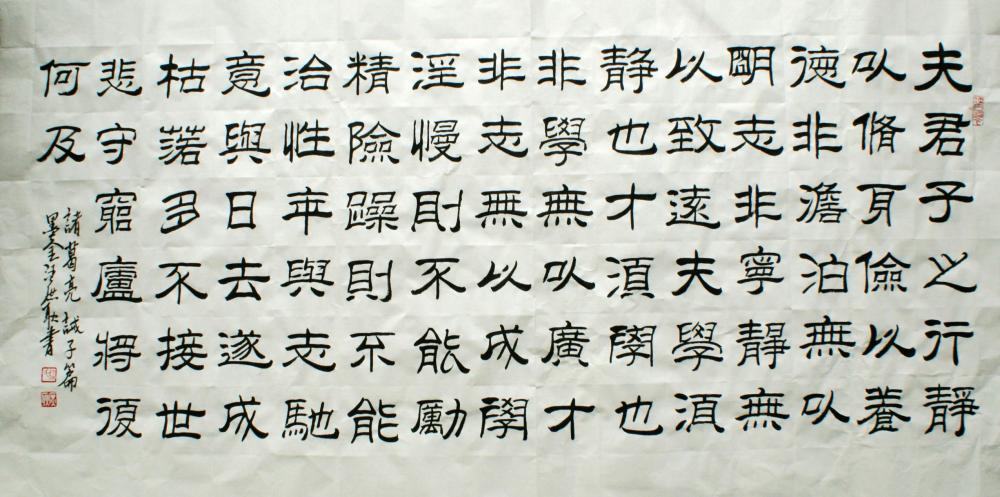 夫君子之行靜
以脩身儉以養
德非澹泊無以
明志非寧靜無
以致遠夫學須
静也才須學也
非學無以廣才
非志無以成學
淫慢則不能勵
精險躁則不能
治性年與志馳
意與日去遂成
枯落多不接世
悲守窮廬將復
何及
諸葛亮誡子篇
書